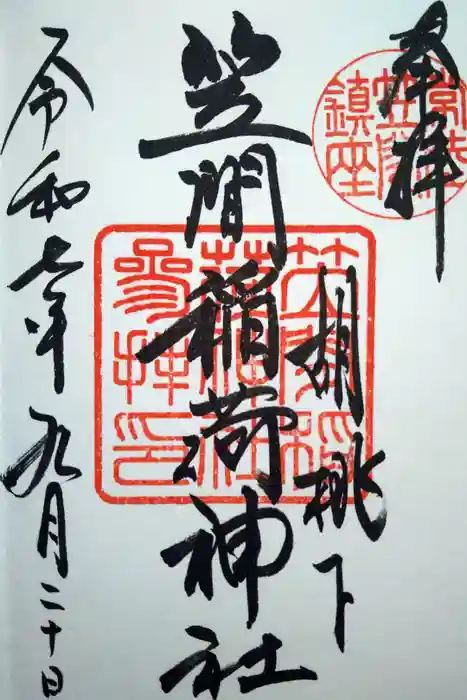 奉拝
常陸笠間鎮座
胡桃下
笠間稲荷神社
笠間稲荷神社参拝印
令和七年九月二十日